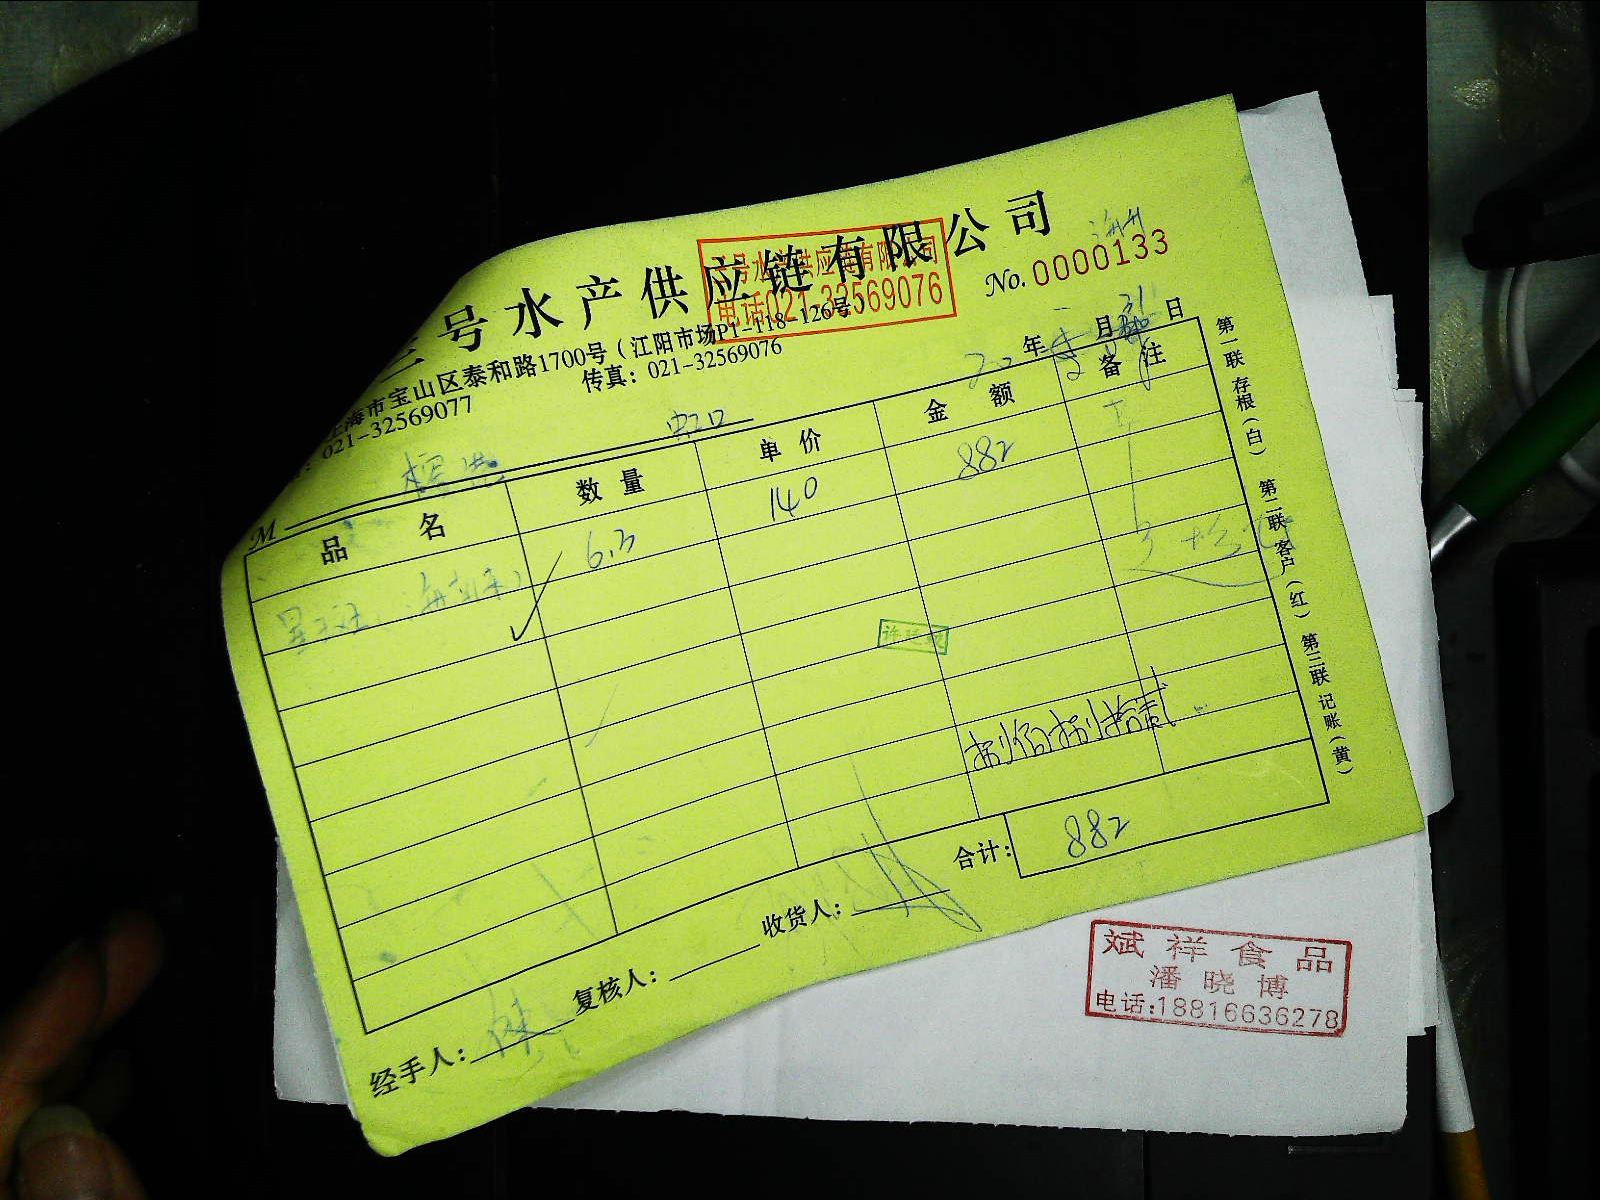 三号水产供应链有限公司
号水产供应链有限公司
电话021-32569076
No. 0000133
上海市宝山区泰和路1700号（江阳市场P1-118-126号）
：021-32569077 传真：021-32569076
年 月 31 日
M
品 名 数 量 单 价 金 额 备 注
6.3 140 882
捌佰捌拾贰
合计：882
经手人： 复核人： 收货人：
第一联 存根（白） 第二联 客户（红） 第三联 记账（黄）
斌祥食品
潘晓博
电话:18816636278